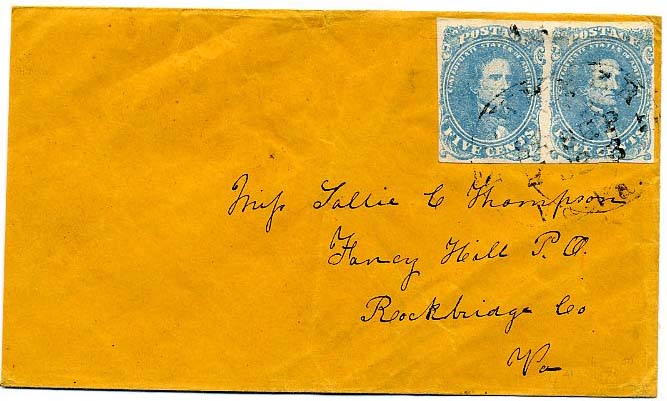 POSTAGE POSTAGE
CONFEDERATE STATES OF AMERICA
FIVE CENTS FIVE CENTS
Miss Sallie C Thompson
Fancy Hill P.O.
Rockbridge Co
Va